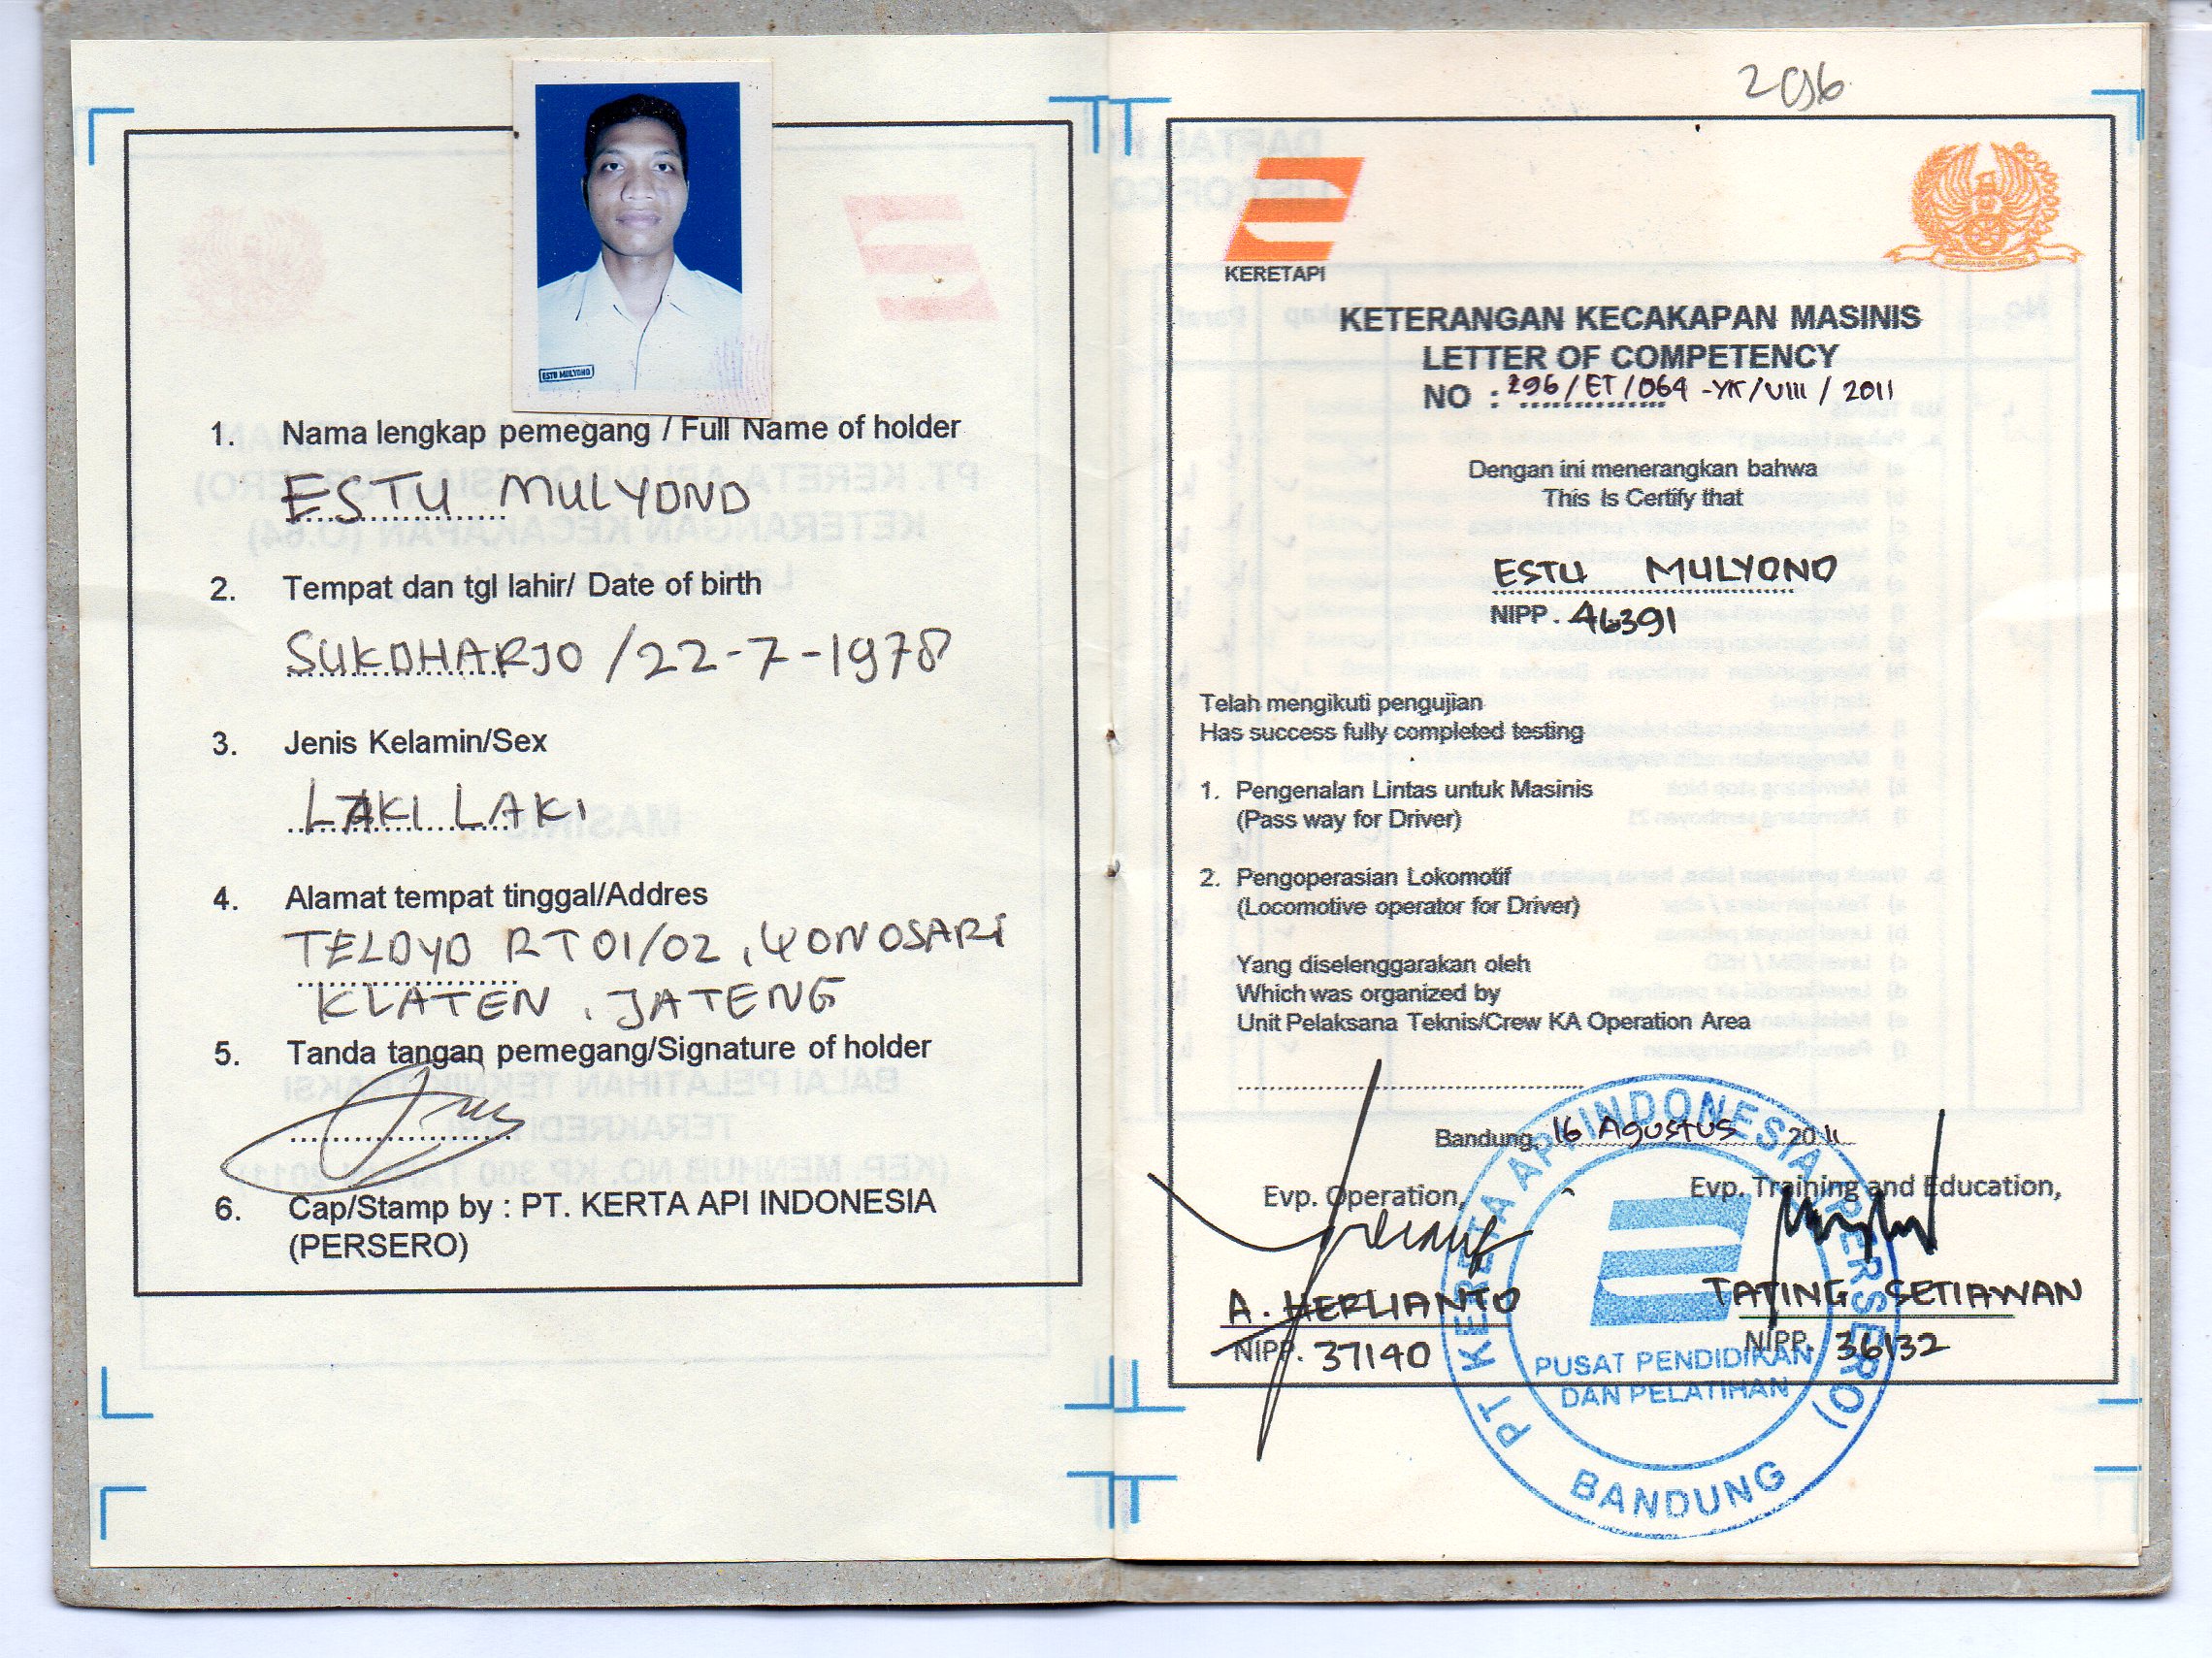 ESTU MULYONO
1. Nama lengkap pemegang / Full Name of holder
ESTU MULYONO
2. Tempat dan tgl lahir/ Date of birth
SUKOHARJO / 22-7-1978
3. Jenis Kelamin/Sex
LAKI LAKI
4. Alamat tempat tinggal/Addres
TELOYO RT 01/02, WONOSARI
KLATEN, JATENG
5. Tanda tangan pemegang/Signature of holder
6. Cap/Stamp by : PT. KERTA API INDONESIA
(PERSERO)
296
KERETAPI
KETERANGAN KECAKAPAN MASINIS
LETTER OF COMPETENCY
NO : 296/ET/064-YK/VIII/2011
Dengan ini menerangkan bahwa
This Is Certify that
ESTU MULYONO
NIPP. 46391
Telah mengikuti pengujian
Has success fully completed testing
1. Pengenalan Lintas untuk Masinis
(Pass way for Driver)
2. Pengoperasian Lokomotif
(Locomotive operator for Driver)
Yang diselenggarakan oleh
Which was organized by
Unit Pelaksana Teknis/Crew KA Operation Area
Bandung, 16 Agustus 2011
Evp. Operation, Evp. Training and Education,
A. HERLIANTO TATING SETIAWAN
NIPP. 37140 NIPP. 36132
PT KERETA API INDONESIA (PERSERO)
PUSAT PENDIDIKAN
DAN PELATIHAN
BANDUNG